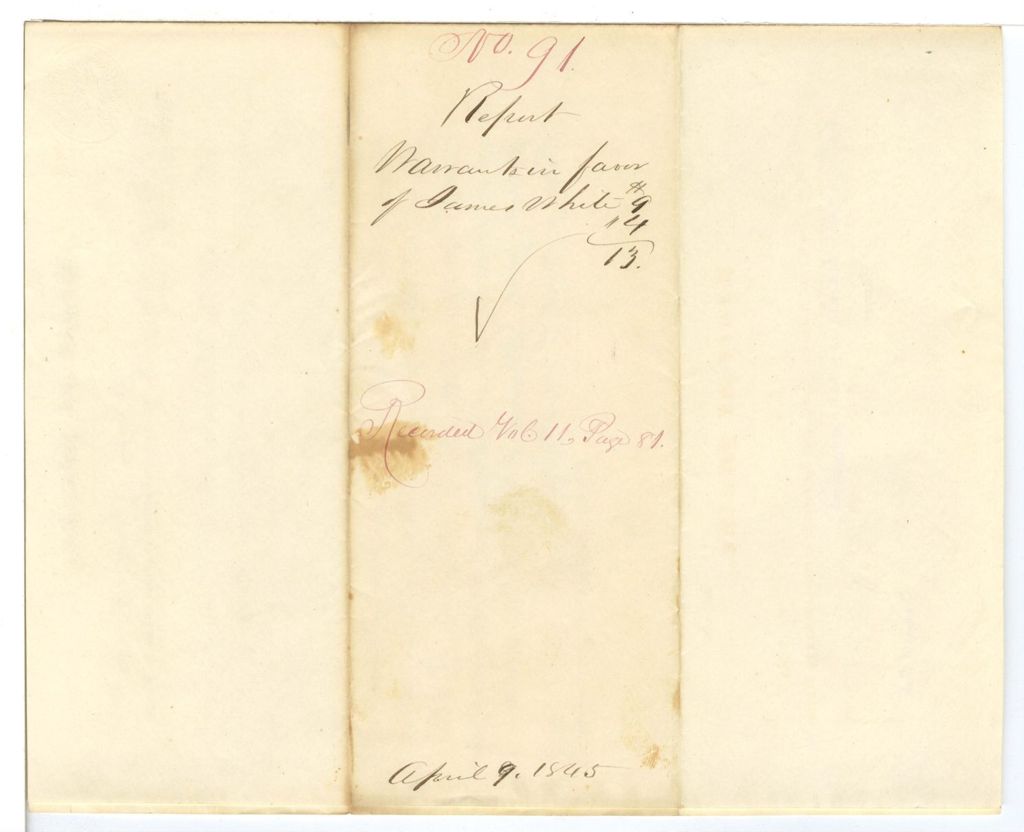 No. 91.
Report
Warrants in favor
of James White $9
" 4
13.
Recorded Vol. 11, Page 81.
April 9. 1845